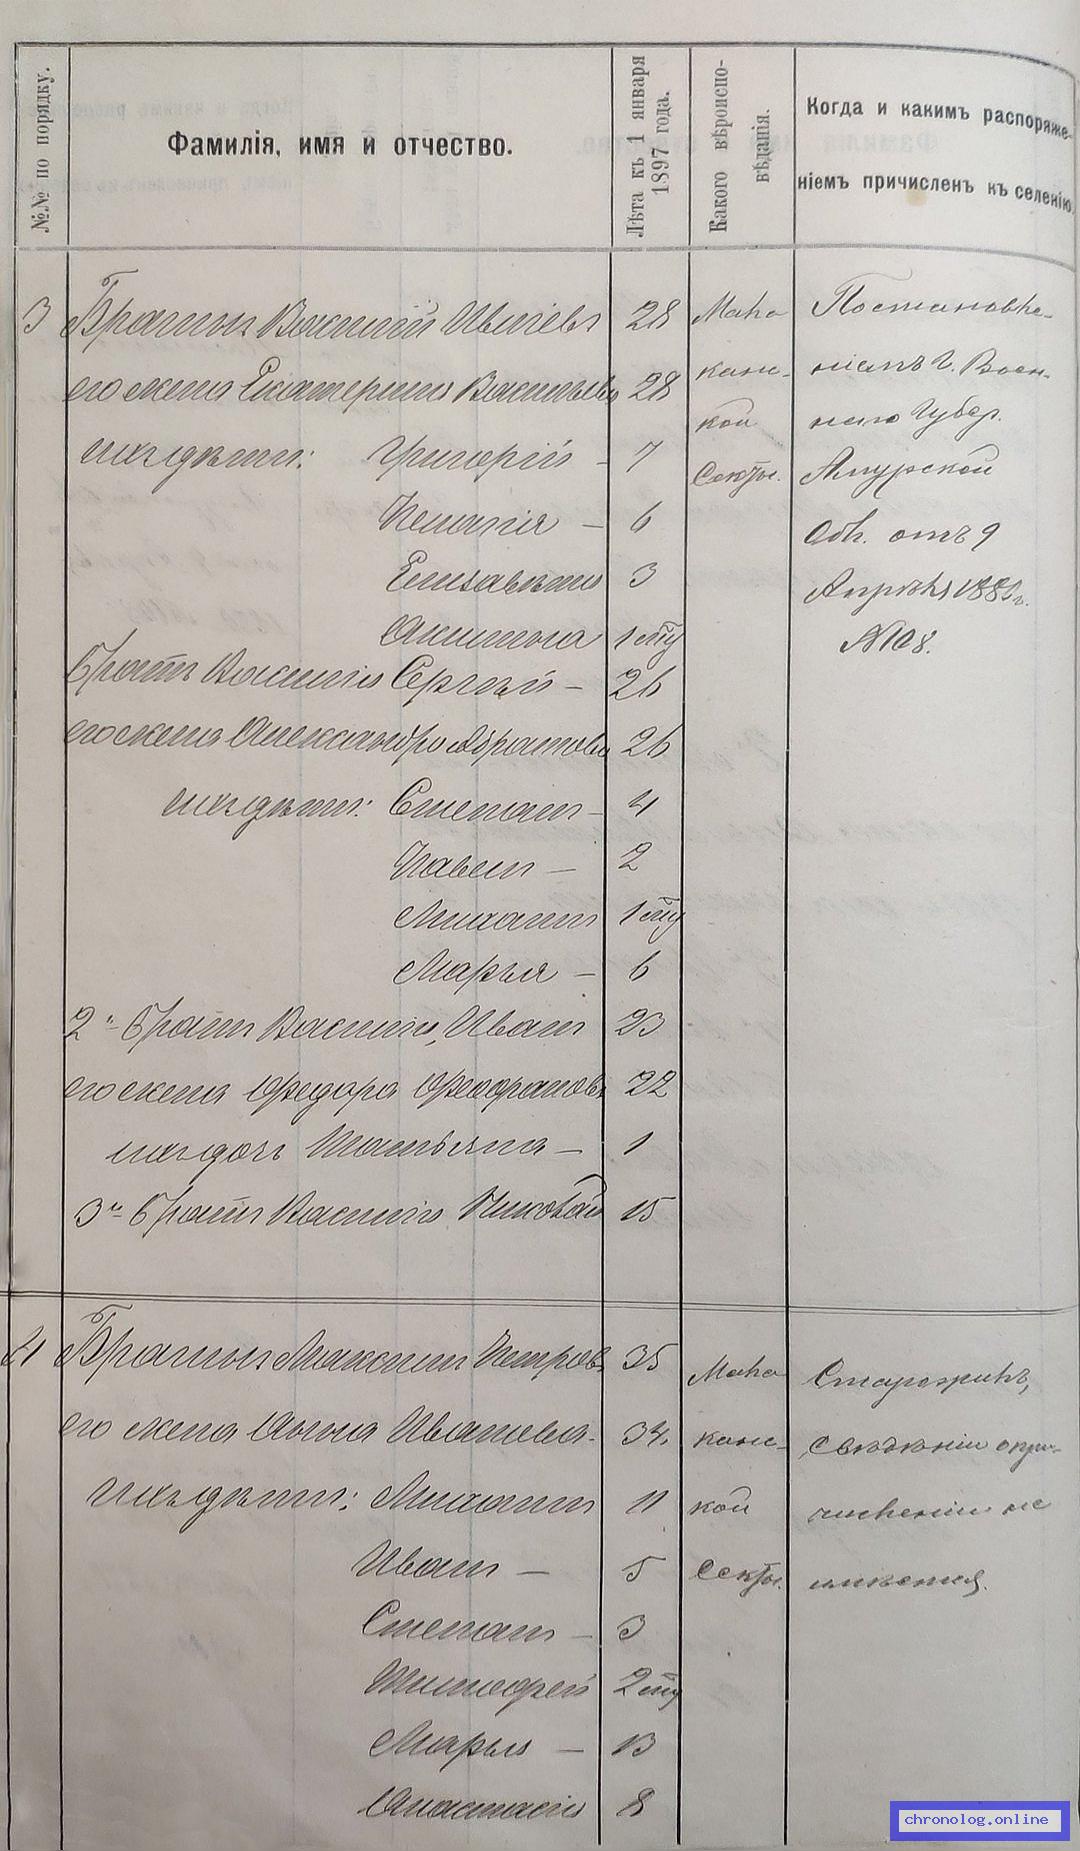 №№ по порядку.
Фамилія, имя и отчество.
Лѣта къ 1 января 1897 года.
Какого вѣроиспо-
вѣданія.
Когда и какимъ распоряже-
ніемъ причисленъ къ селенію.
3 Василій 28 Моло
его жена Екатерина Васильева 28 канс- ніемъ г. Воен-
ихъ дѣти: Григорій - 7 кой наго Губер.
Пелагія - 6 Секты. Амурской
Елизавета 3 Обл. отъ 9
Акилина 1 Апрѣля
братъ Василія Сергѣй - 26 №108.
его жена Александра Абрамова 26
ихъ дѣти: Степанъ - 4
Павелъ - 2
Михаилъ 1
Марья - 6
2й братъ Василія, Иванъ 23
его жена Федора 22
ихъ дочь Татьяна - 1
3й братъ Василія Николай 15
4 Максимъ Петровъ 35 Моло Старожилъ,
его жена Анна Иванова - 34. канс- свѣдѣній о при-
ихъ дѣти: Михаилъ 11 кой численіи не
Иванъ - 5 Секты. имѣется.
Степанъ - 3
Тимофей 2
Марья - 13
Анастасія 8
chronolog.online